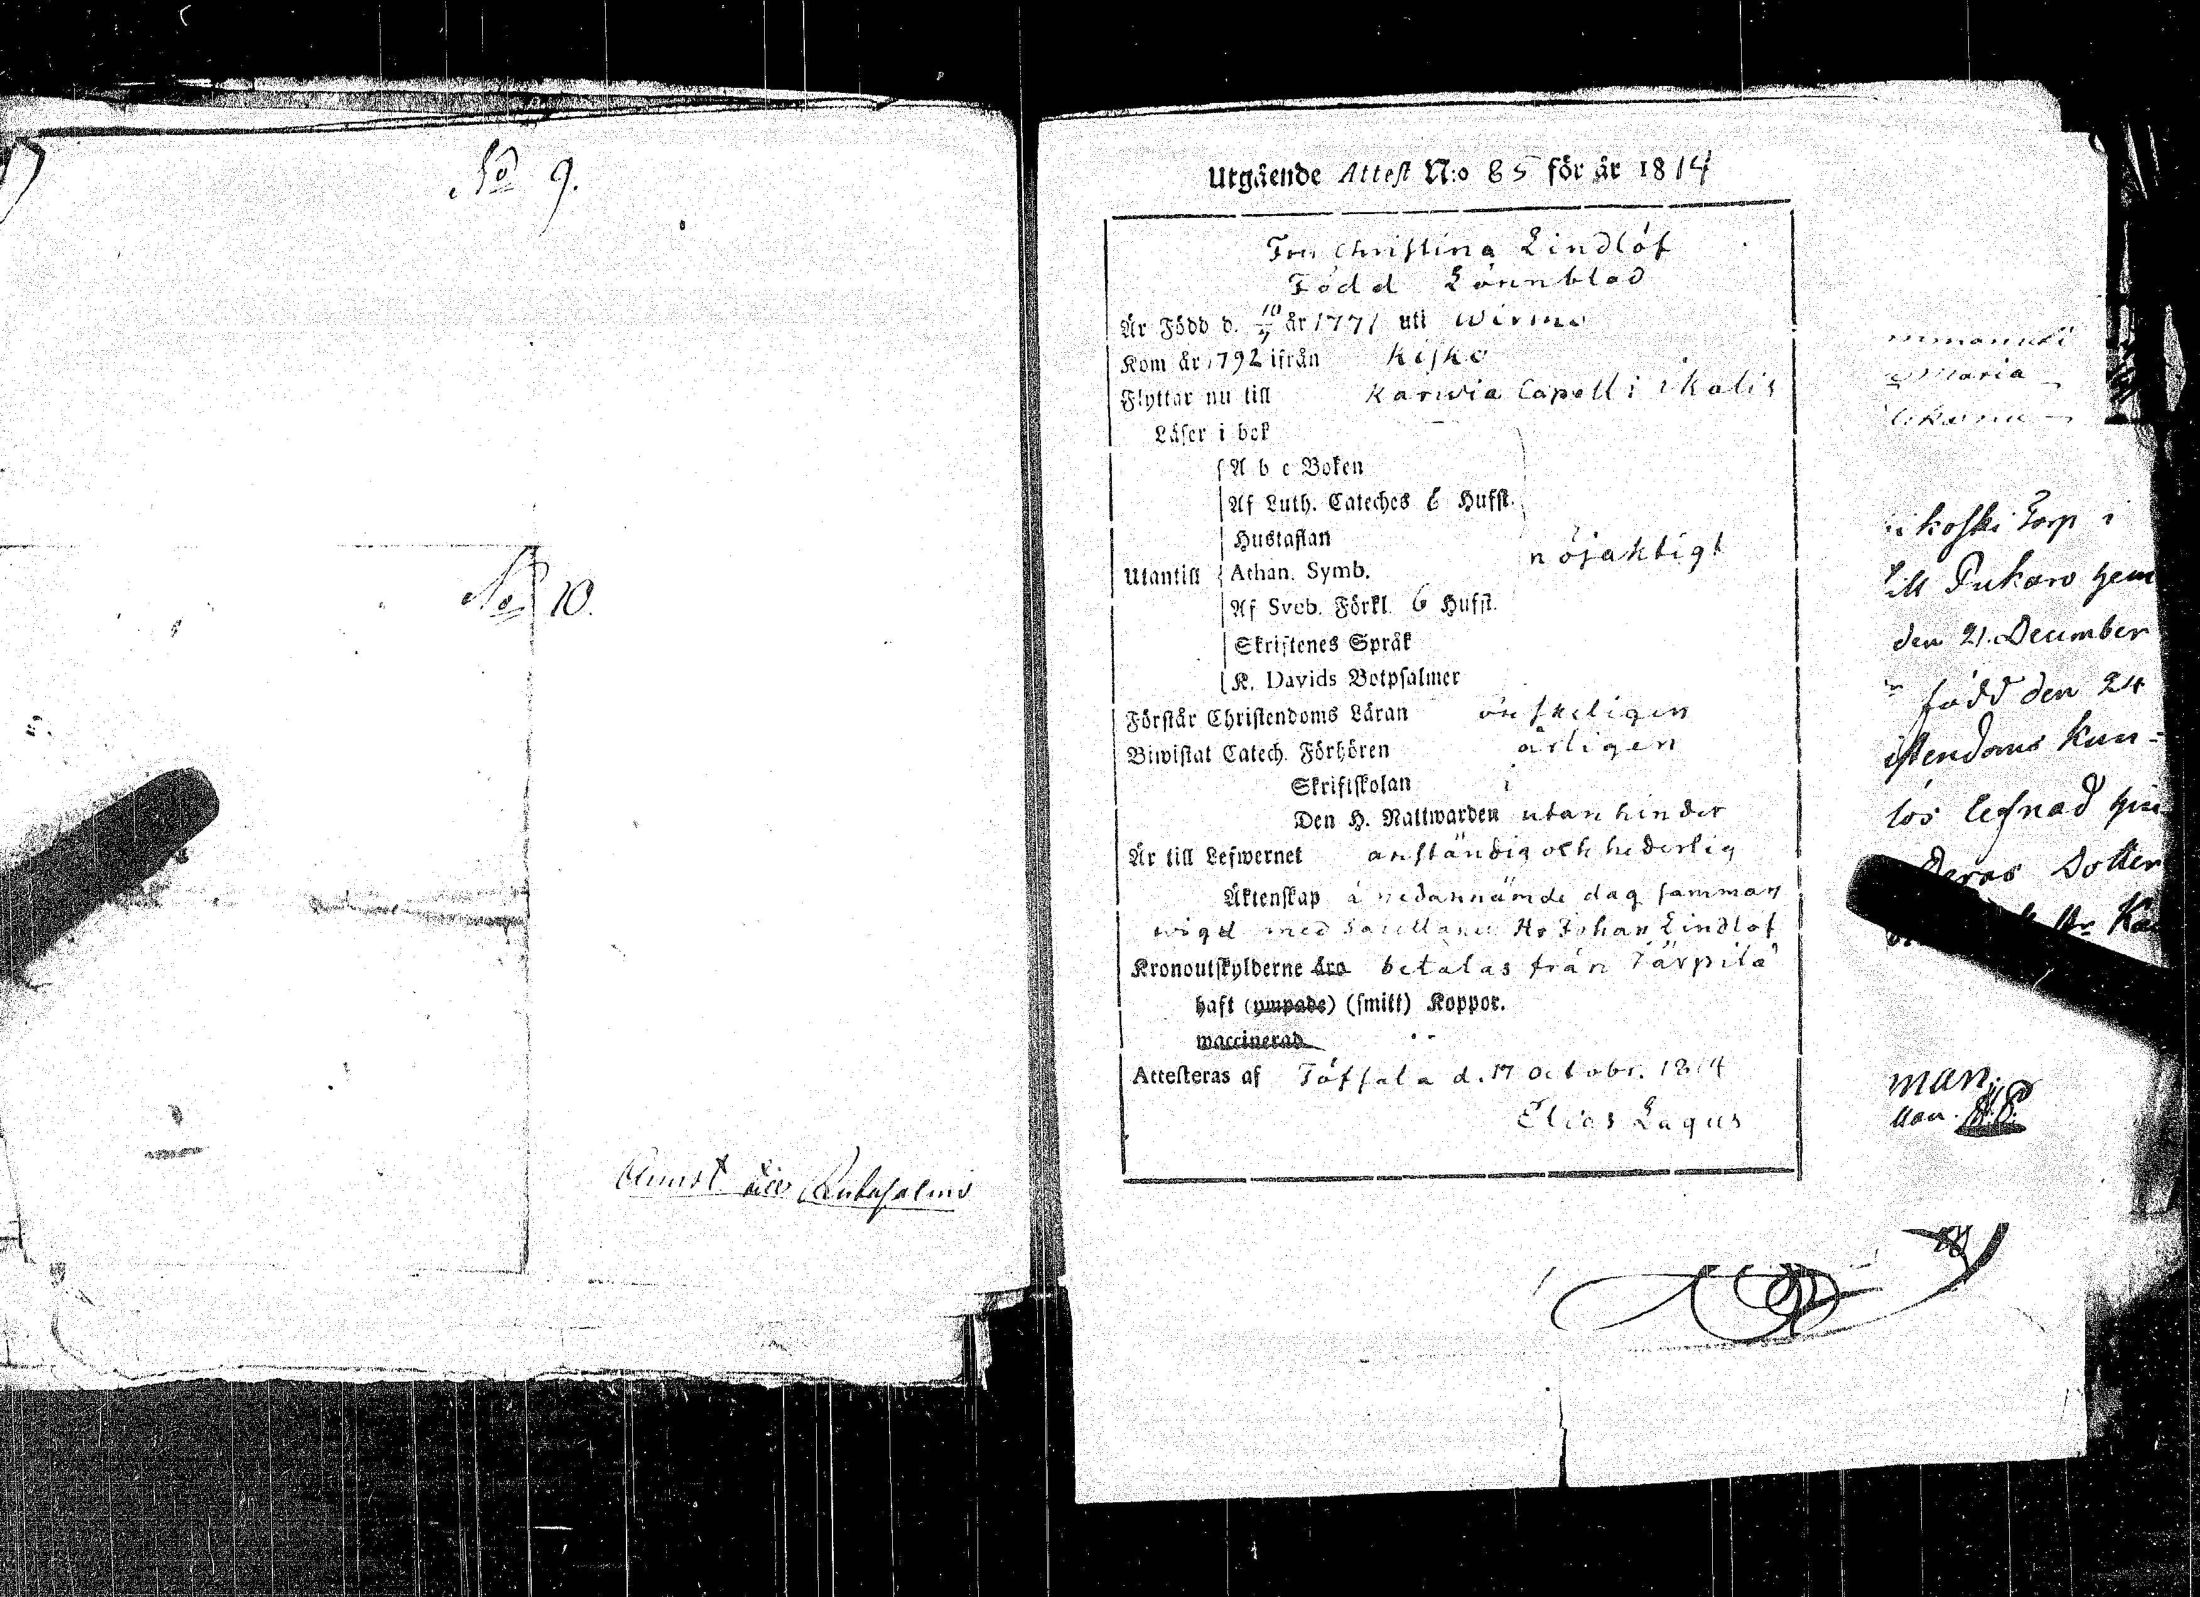 No 9.
No 10.
Utgående Attest N:o 85 för år 1814
Fru Christina Lindlöf
Född Lönnblad
Är Född d. 10/7 år 1771 uti Wirmo
Kom år 1792 ifrån Kisko
Flyttar nu till Karwia Capell i Ikalis
Läser i bok
A b c Boken
Af Luth. Cateches 6 Hufst.
Hustaflan
nöjaktigt
Utantill Athan. Symb.
Af Sveb. Förkl. 6 Hufst.
Skriftenes Språk
K. Davids Botpsalmer
Förstår Christendoms Läran önskeligen
Biwistat Catech. Förhören årligen
Skriftskolan
Den H. Nattwarden utan hinder
Är till Lefwernet anständig och hederlig
Äktenskap å nedannämde dag samman
wigd med Hr Johan Lindlöf
Kronoutskylderne äro betalas från Tärpilä
haft (ympade) (smitt) Koppor.
waccinerad
Attesteras af Töfsala d. 17 Octobr. 1814
Elias Lagus
Maria
koski Torp i
till Pukaro hem
den 21. December
född den 24
istendoms Kun-
lös lefnad
deras Dotter
man.